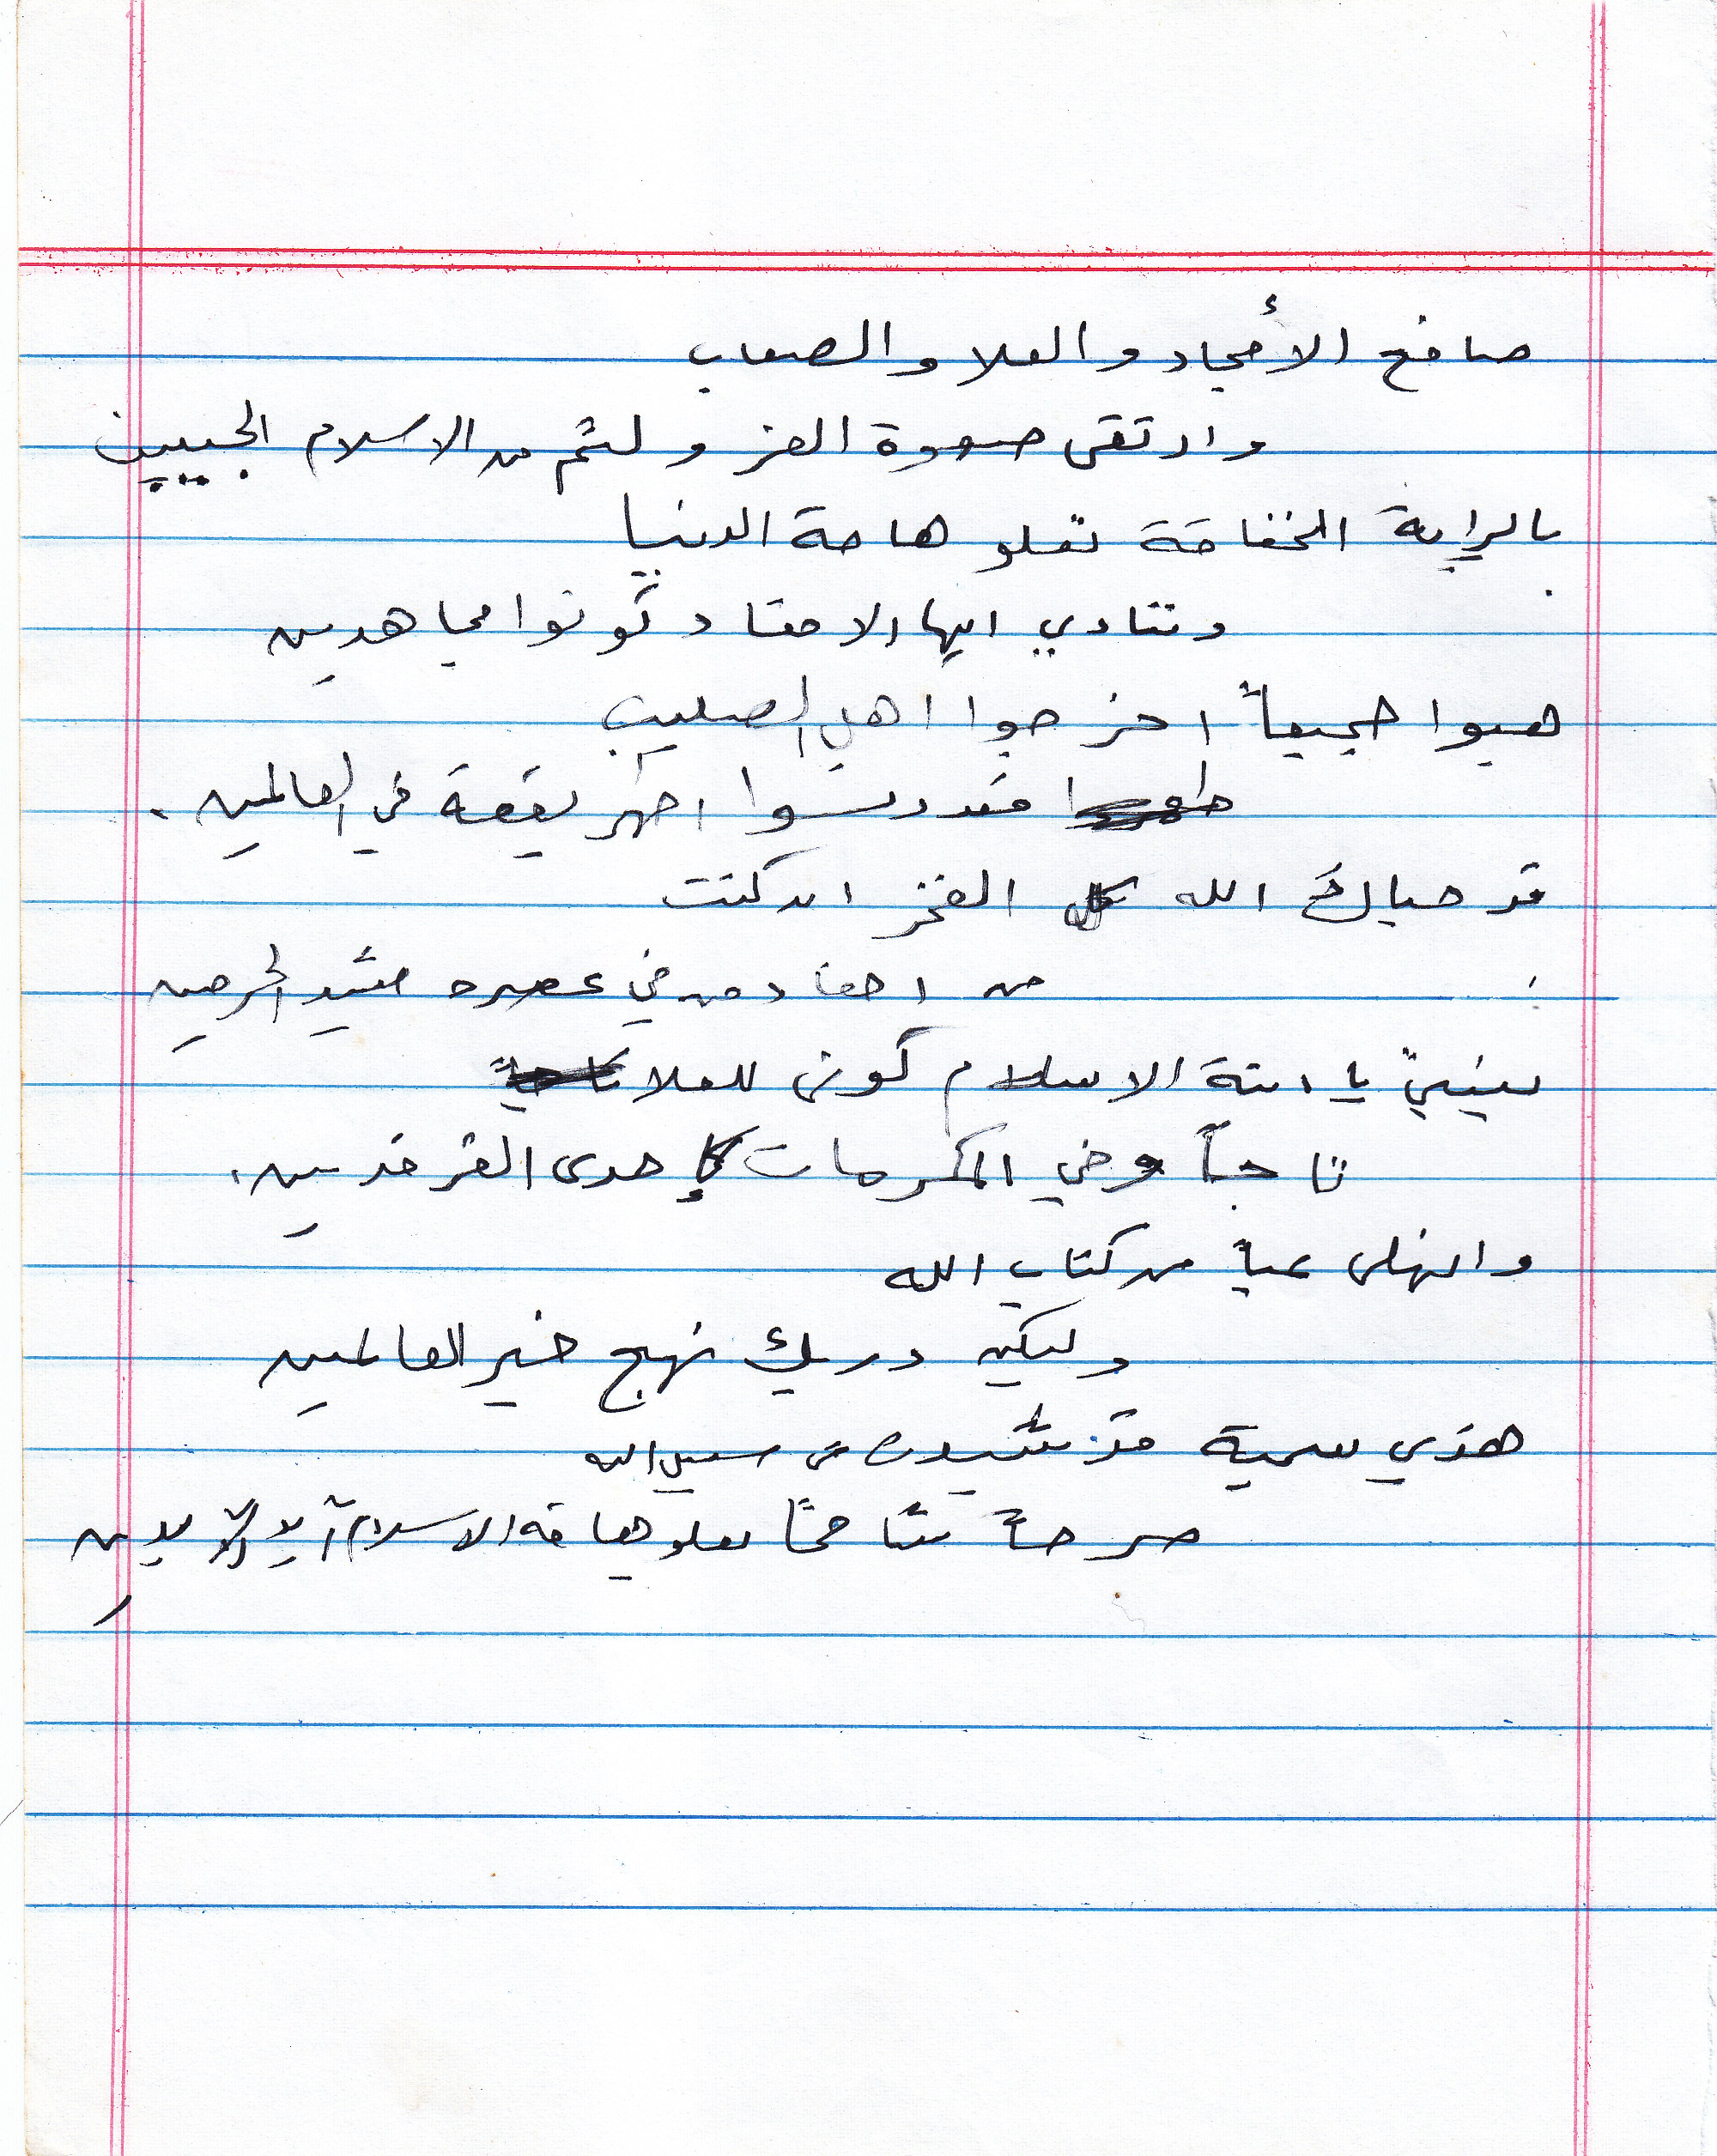 صافح الأمجاد والعلا والصعاب
وارتقى صهوة العز ولثم من الاسلام الجبين
بالراية الخفاقة تعلو هامة الدنيا
وتنادي ايها الاحفاد كونوا مجاهدين
هبوا جميعاً اخرجوا اهل الصليب
فقد دنسوا اطهر بقعة في العالمين.
قد حباك الله كل الفخر ان كنت
من احفاد من في عصره مشيد الحرمين
بنيتي يا ابنة الاسلام كونى للعلا
تاجاً وفي المكرمات كإحدى الفرقدين.
وانهلى عباً من كتاب الله
وليكن دربك نهج خير العالمين
هذي سمية قد شيدت في سبيل الله
صرحاً شامخاً يعلو هامة الاسلام أبد الآبدين